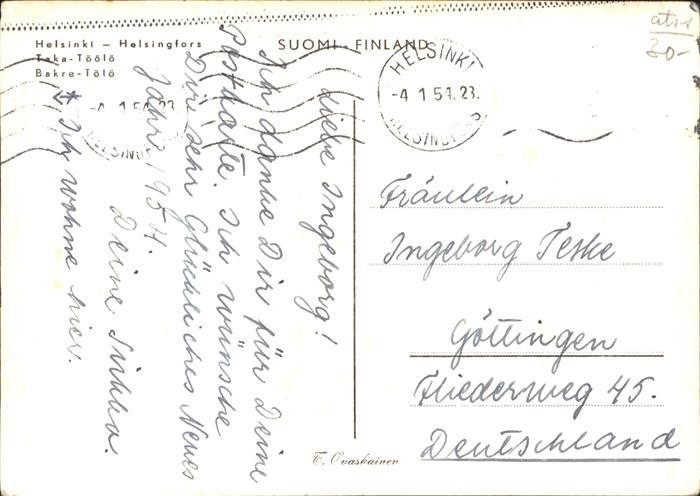 Helsinki — Helsingfors
Taka-Töölö
Bakre-Tölö
SUOMI - FINLAND
HELSINKI
-4.1.54.23.
HELSINGFORS
-4.1.54.23
HELSINGF
30-
Liebe Ingeborg!
Ich danke Dir für Deine
Postkarte. Ich wünsche
Dir sehr Glückliches Neues
Jahr 1954.
Deine Sirkka.
* Ich wohne hier.
Fräulein
Ingeborg Teske
Göttingen
Fliederweg 45.
Deutschland
T. Ovaskainen